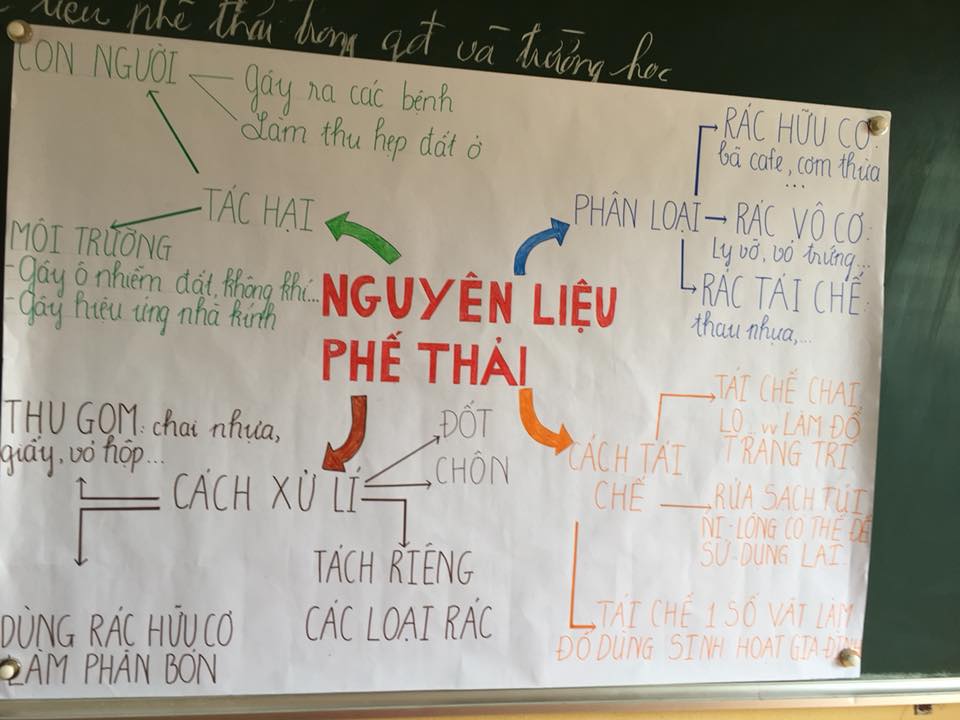 liệu phế thải trong gđ và trường học
CON NGƯỜI
Gây ra các bệnh
Làm thu hẹp đất ở
TÁC HẠI
MÔI TRƯỜNG
- Gây ô nhiễm đất, không khí...
- Gây hiệu ứng nhà kính
PHÂN LOẠI
RÁC HỮU CƠ:
bã cafe, cơm thừa
...
RÁC VÔ CƠ:
Ly vỡ, vỏ trứng...
RÁC TÁI CHẾ:
thau nhựa,...
NGUYÊN LIỆU
PHẾ THẢI
THU GOM: chai nhựa,
giấy, vỏ hộp...
CÁCH XỬ LÍ
ĐỐT
CHÔN
TÁCH RIÊNG
CÁC LOẠI RÁC
DÙNG RÁC HỮU CƠ
LÀM PHÂN BÓN
CÁCH TÁI
CHẾ
TÁI CHẾ CHAI
LỌ...vv LÀM ĐỒ
TRANG TRÍ
RỬA SẠCH TÚI
NI-LÔNG CÓ THỂ ĐỂ
SỬ DỤNG LẠI
TÁI CHẾ 1 SỐ VẬT LÀM
ĐỒ DÙNG SINH HOẠT GIA ĐÌNH